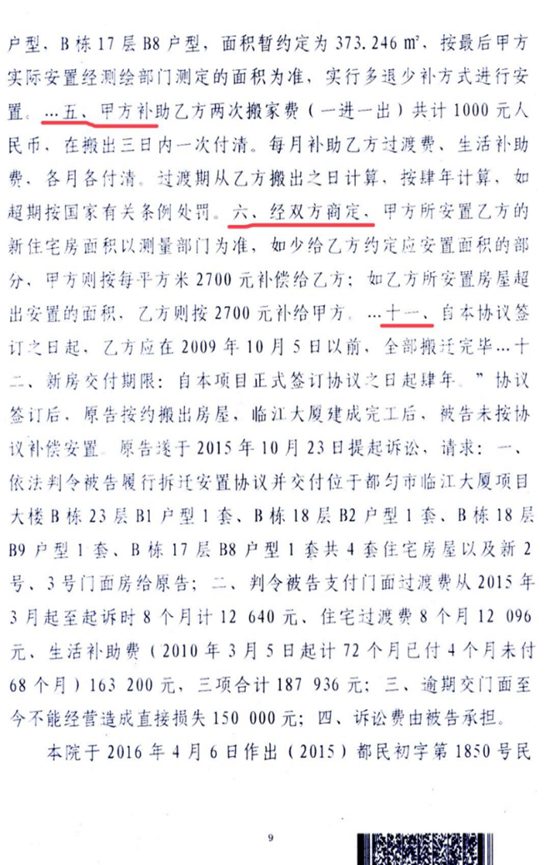 户型，B栋17层B8户型，面积暂约定为373.246㎡，按最后甲方
实际安置经测绘部门测定的面积为准，实行多退少补方式进行安
置。…五、甲方补助乙方两次搬家费（一进一出）共计1000元人
民币，在搬出三日内一次付清。每月补助乙方过渡费、生活补助
费，各月各付清。过渡期从乙方搬出之日计算，按肆年计算，如
超期按国家有关条例处罚。六、经双方商定，甲方所安置乙方的
新住宅房面积以测量部门为准，如少给乙方约定应安置面积的部
分，甲方则按每平方米2700元补偿给乙方；如乙方所安置房屋超
出安置的面积，乙方则按2700元补给甲方。…十一、自本协议签
订之日起，乙方应在2009年10月5日以前，全部搬迁完毕…十
二、新房交付期限：自本项目正式签订协议之日起肆年。”协议
签订后，原告按约搬出房屋，临江大厦建成完工后，被告未按协
议补偿安置。原告遂于2015年10月23日提起诉讼，请求：一、
依法判令被告履行拆迁安置协议并交付位于都匀市临江大厦项目
大楼B栋23层B1户型1套、B栋18层B2户型1套、B栋18层
B9户型1套、B栋17层B8户型1套共4套住宅房屋以及新2
号、3号门面房给原告；二、判令被告支付门面过渡费从2015年
3月起至起诉时8个月计12 640元、住宅过渡费8个月12 096
元、生活补助费（2010年3月5日起计72个月已付4个月未付
68个月）163 200元，三项合计187 936元；三、逾期交门面至
今不能经营造成直接损失150 000元；四、诉讼费由被告承担。
本院于2016年4月6日作出（2015）都民初字第1850号民
9